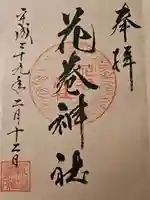 奉拝
花巻神社
平成二十九年二月十二日